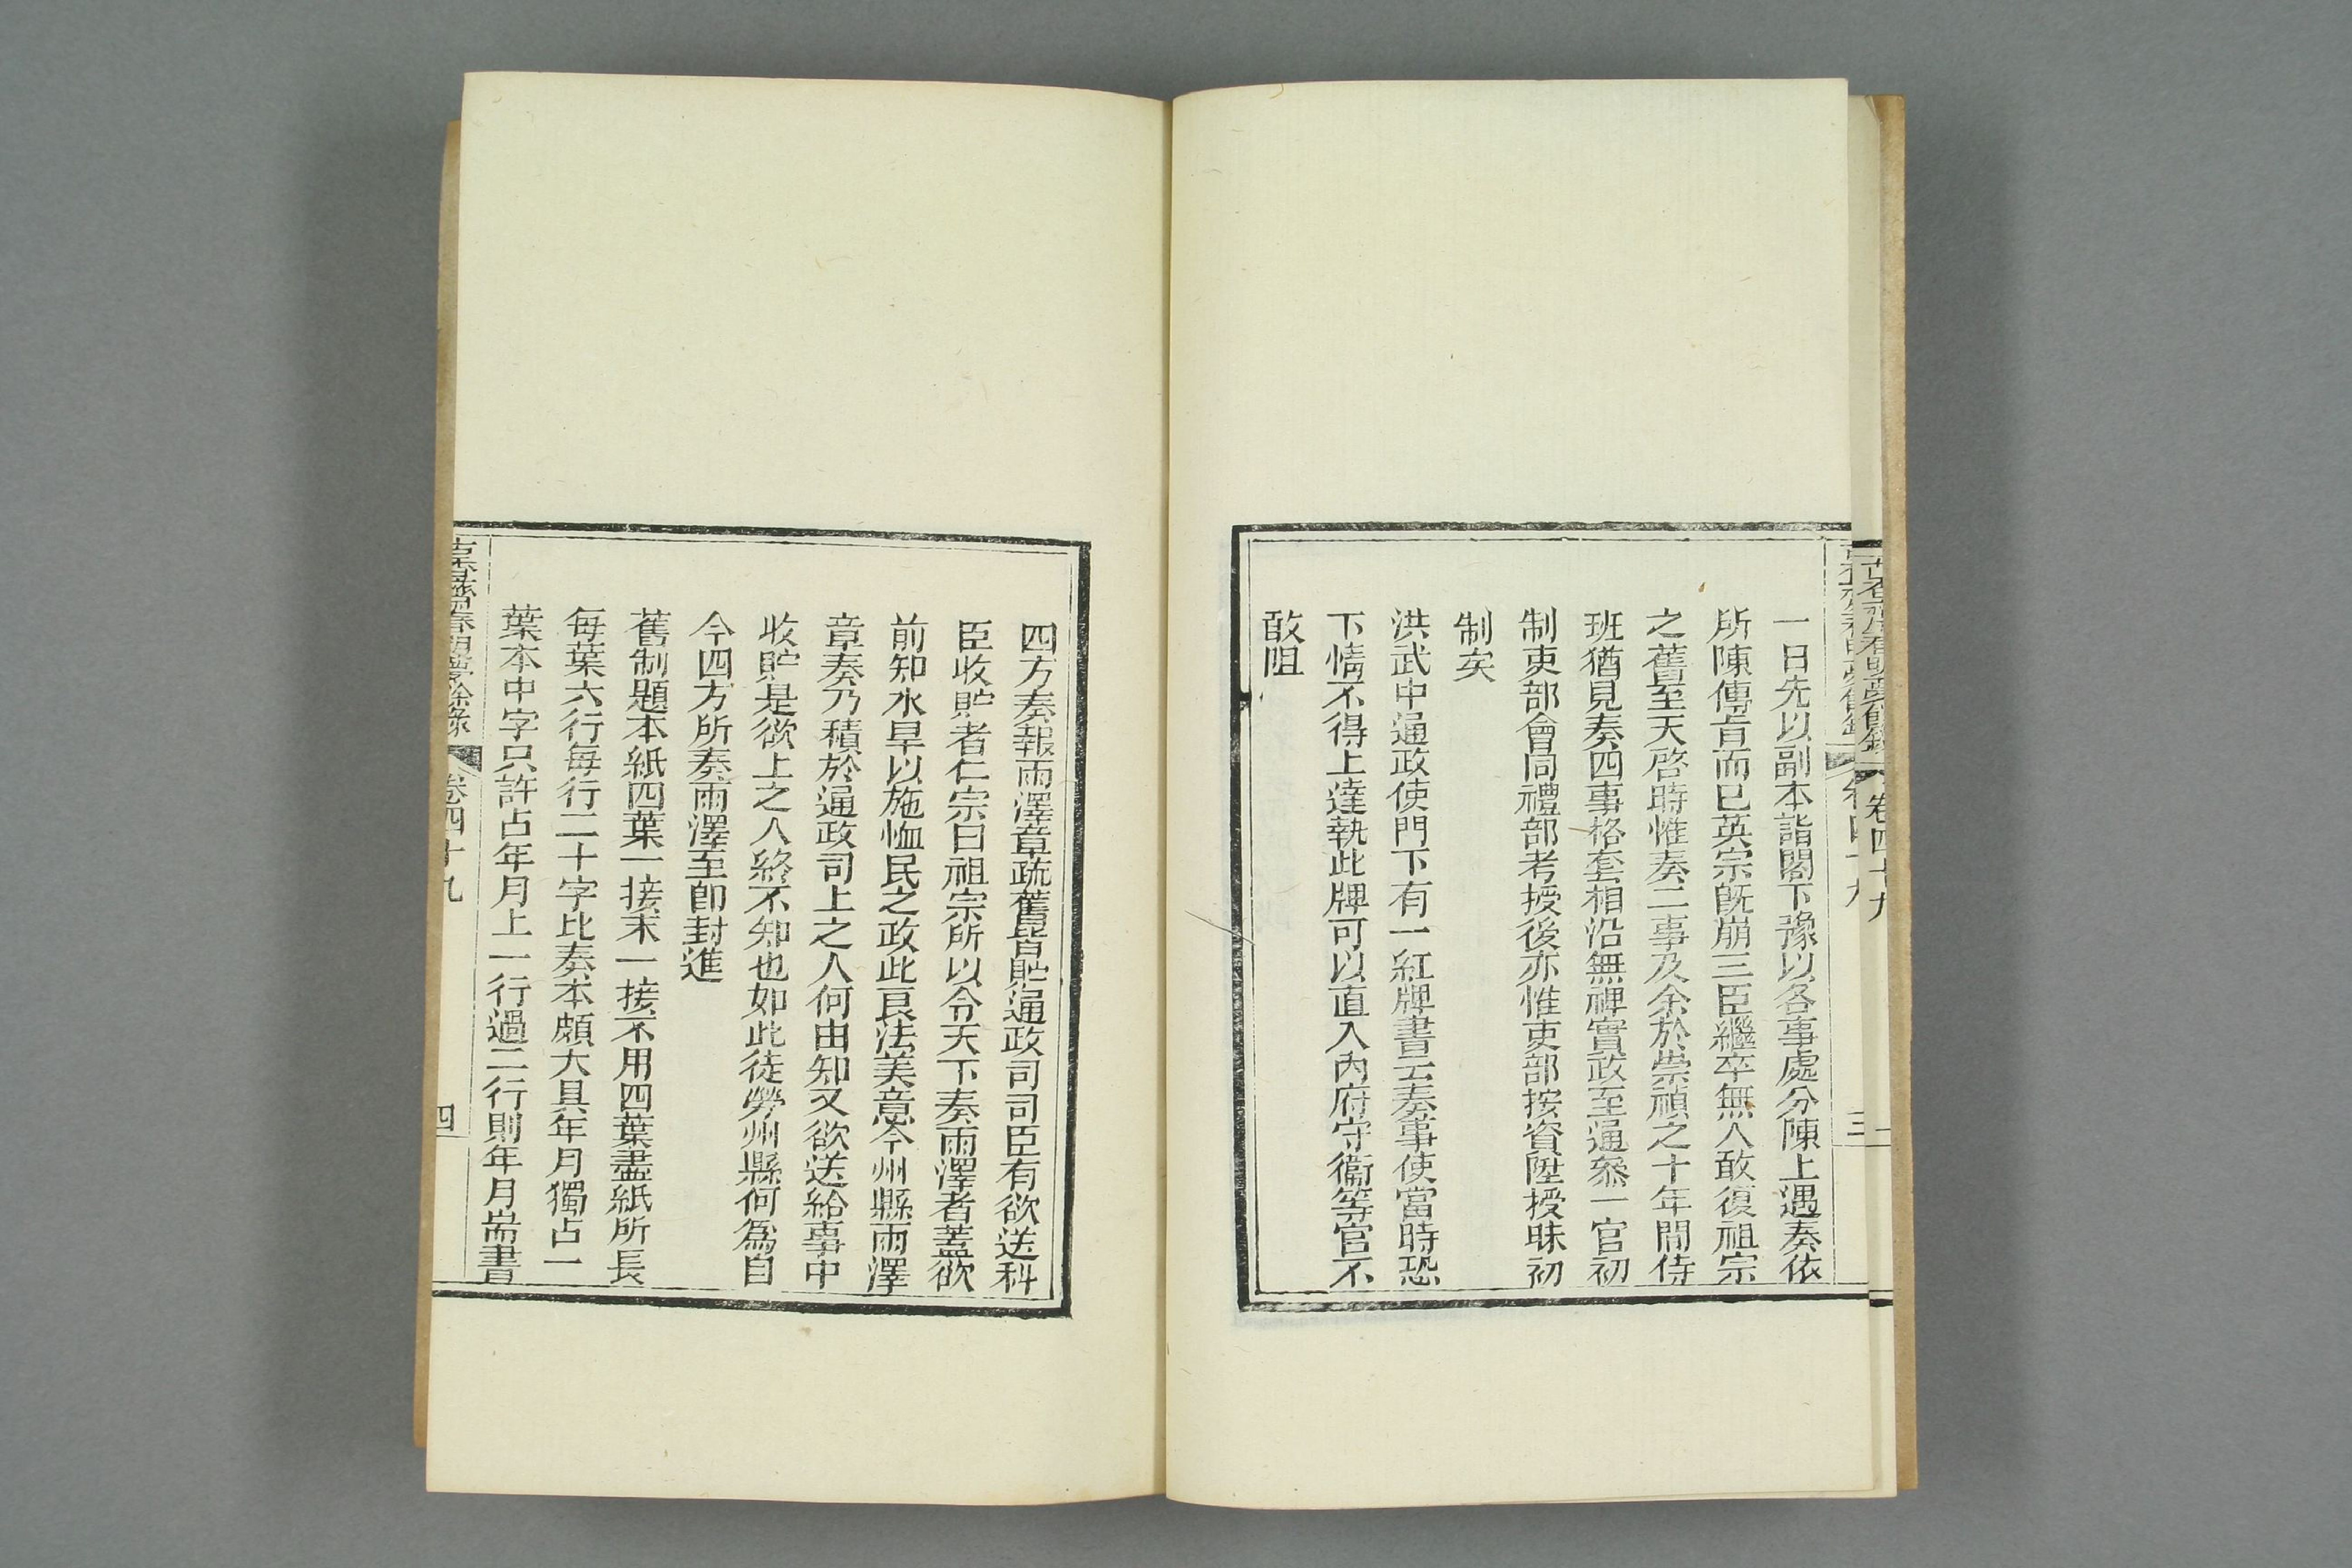 一日先以副本詣閣下豫以各事處分陳上遇奏依
所陳傳旨而已英宗旣崩三臣繼卒無人敢復祖宗
之舊至天啓時惟奏二事及余於崇禎之十年間侍
班猶見奏四事格套相沿無禆實政至通叅一官初
制吏部會同禮部考授後亦惟吏部按資陞授昧初
制矣
洪武中通政使門下有一紅牌書云奏事使當時恐
下情不得上達執此牌可以直入內府守衞等官不
敢阻
四方奏報雨澤章疏舊皆貯通政司司臣有欲送科
臣收貯者仁宗曰祖宗所以令天下奏雨澤者蓋欲
前知水旱以施恤民之政此良法美意今州縣雨澤
章奏乃積於通政司上之人何由知又欲送給事中
收貯是欲上之人終不知也如此徒勞州縣何爲自
今四方所奏雨澤至卽封進
舊制題本紙四葉一接末一接不用四葉盡紙所長
每葉六行每行二十字比奏本頗大具年月獨占一
葉本中字只許占年月上一行過二行則年月耑書
春明夢餘錄
卷四十九
四